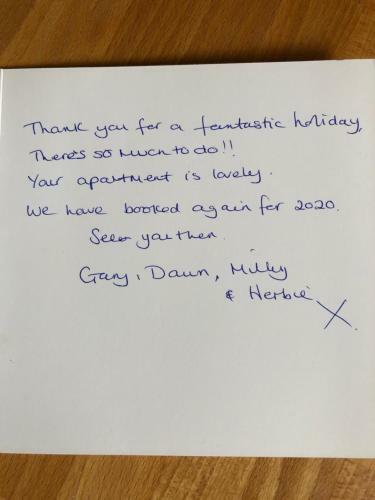 Thank you for a fantastic holiday,
There's so much to do!!
Your apartment is lovely.
We have booked again for 2020.
See you then.
Gary, Dawn, Milly
& Herbie
X